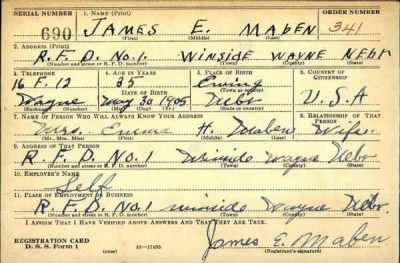 SERIAL NUMBER 1. NAME (Print) ORDER NUMBER
690 JAMES E. MABEN 341
(First) (Middle) (Last)
2. ADDRESS (Print)
R.F.D. No.1. WINSIDE WAYNE NEBR
(Number and street or R. F. D. number) (Town) (County) (State)
3. TELEPHONE 4. AGE IN YEARS 5. PLACE OF BIRTH 6. COUNTRY OF CITIZENSHIP
16 F. 12 Ewing
DATE OF BIRTH (Town or county)
Wayne May 30 1905 Nebr U.S.A
(Exchange) (Number) (Mo.) (Day) (Yr.) (State or country)
7. NAME OF PERSON WHO WILL ALWAYS KNOW YOUR ADDRESS 8. RELATIONSHIP OF THAT PERSON
Mrs. Emma H. Maben Wife.
(Mr., Mrs., Miss) (First) (Middle) (Last)
9. ADDRESS OF THAT PERSON
R.F.D. No.1 Winside Wayne Nebr
(Number and street or R. F. D. number) (Town) (County) (State)
10. EMPLOYER'S NAME
Self
11. PLACE OF EMPLOYMENT OR BUSINESS
R.F.D. No.1 winside Wayne Nebr.
(Number and street or R. F. D. number) (Town) (County) (State)
I AFFIRM THAT I HAVE VERIFIED ABOVE ANSWERS AND THAT THEY ARE TRUE.
REGISTRATION CARD
D. S. S. Form 1 (over) 16—17105 James E. Maben
(Registrant's signature)